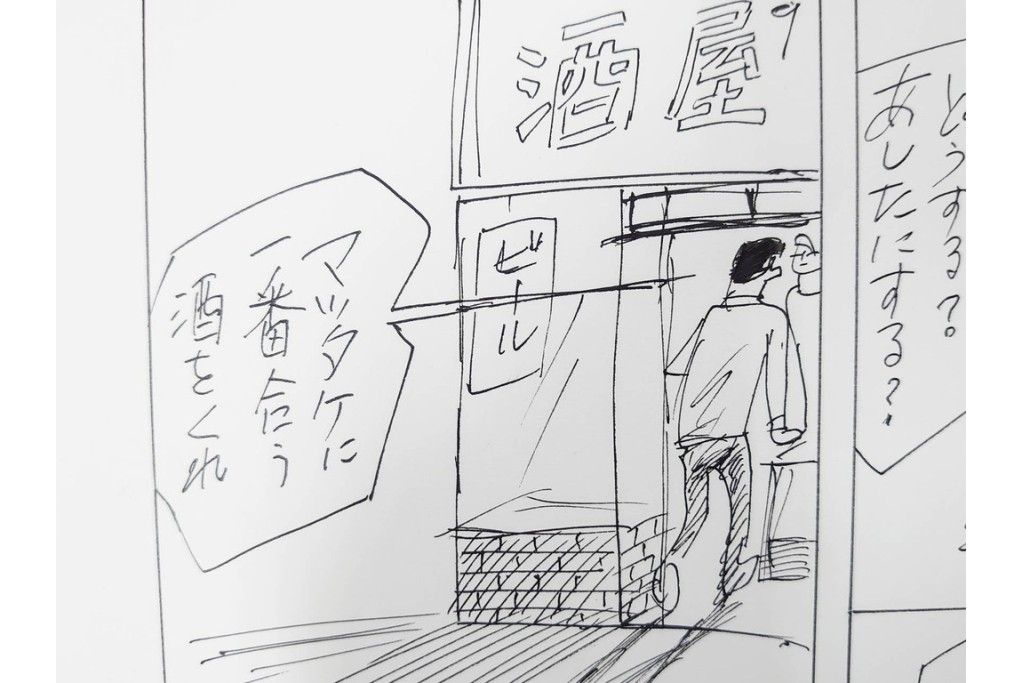 どうする?
あしたにする?
酒屋
ビール
マッタケに
一番合う
酒をくれ